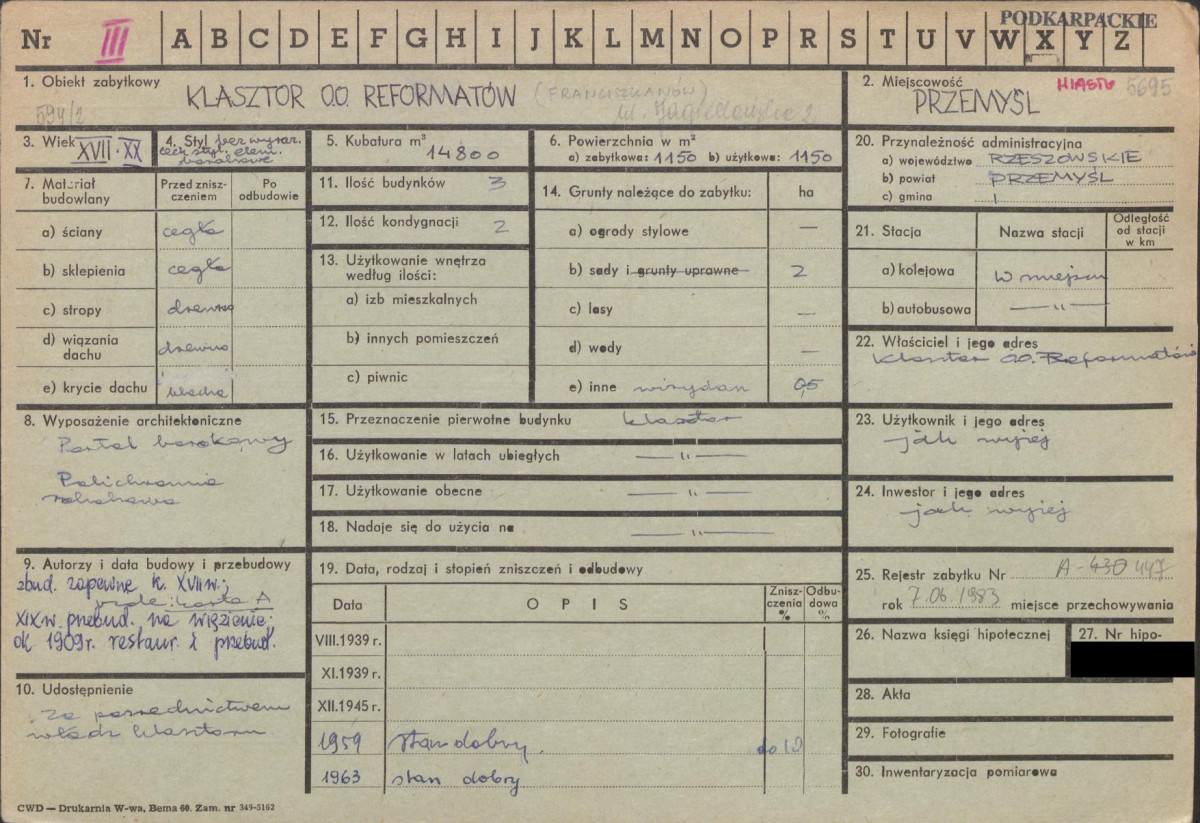 PODKARPACKIE
Nr III A B C D E F G H I J K L M N O P R S T U V W X Y Z
1. Obiekt zabytkowy
KLASZTOR O.O. REFORMATÓW (FRANCISZKANÓW)
594/2 ul. Jagiellońska 2
2. Miejscowość MIASTO 5695
PRZEMYŚL
3. Wiek XVII · XX
4. Styl bez wyraź.
cech styl. elem.
barokowe
5. Kubatura m³
14800
6. Powierzchnia w m²
a) zabytkowa: 1150 b) użytkowa: 1150
20. Przynależność administracyjna
a) województwo RZESZOWSKIE
b) powiat PRZEMYŚL
c) gmina
7. Materiał budowlany
Przed zniszczeniem
Po odbudowie
a) ściany cegła
b) sklepienia cegła
c) stropy drewno
d) wiązania dachu drewno
e) krycie dachu blacha
11. Ilość budynków 3
12. Ilość kondygnacji 2
13. Użytkowanie wnętrza
według ilości:
a) izb mieszkalnych
b) innych pomieszczeń
c) piwnic
14. Grunty należące do zabytku: ha
a) ogrody stylowe —
b) sady i grunty uprawne 2
c) lasy —
d) wody —
e) inne wirydarz 0,5
21. Stacja Nazwa stacji Odległość od stacji w km
a) kolejowa w miejscu
b) autobusowa — „ —
22. Właściciel i jego adres
Klasztor O.O. Reformatów
8. Wyposażenie architektoniczne
Portal barokowy
Polichromia
15. Przeznaczenie pierwotne budynku klasztor
16. Użytkowanie w latach ubiegłych — „ —
17. Użytkowanie obecne — „ —
18. Nadaje się do użycia na — „ —
23. Użytkownik i jego adres
jak wyżej
24. Inwestor i jego adres
jak wyżej
9. Autorzy i data budowy i przebudowy
zbud. zapewne k. XVII w.;
vide: karta A
XIX w. przebud. na więzienie;
ok 1909 r. restaur. i przebud.
10. Udostępnienie
Za pośrednictwem
władz klasztoru
19. Data, rodzaj i stopień zniszczeń i odbudowy
Data O P I S Zniszczenia % Odbudowa %
VIII.1939 r.
XI.1939 r.
XII.1945 r.
1959 stan dobry.
1963 stan dobry
25. Rejestr zabytku Nr A-430 447
rok 7.06.1983 miejsce przechowywania
26. Nazwa księgi hipotecznej
27. Nr hipo-
28. Akta
29. Fotografie
30. Inwentaryzacja pomiarowa
CWD — Drukarnia W-wa, Bema 60. Zam. nr 349-5162